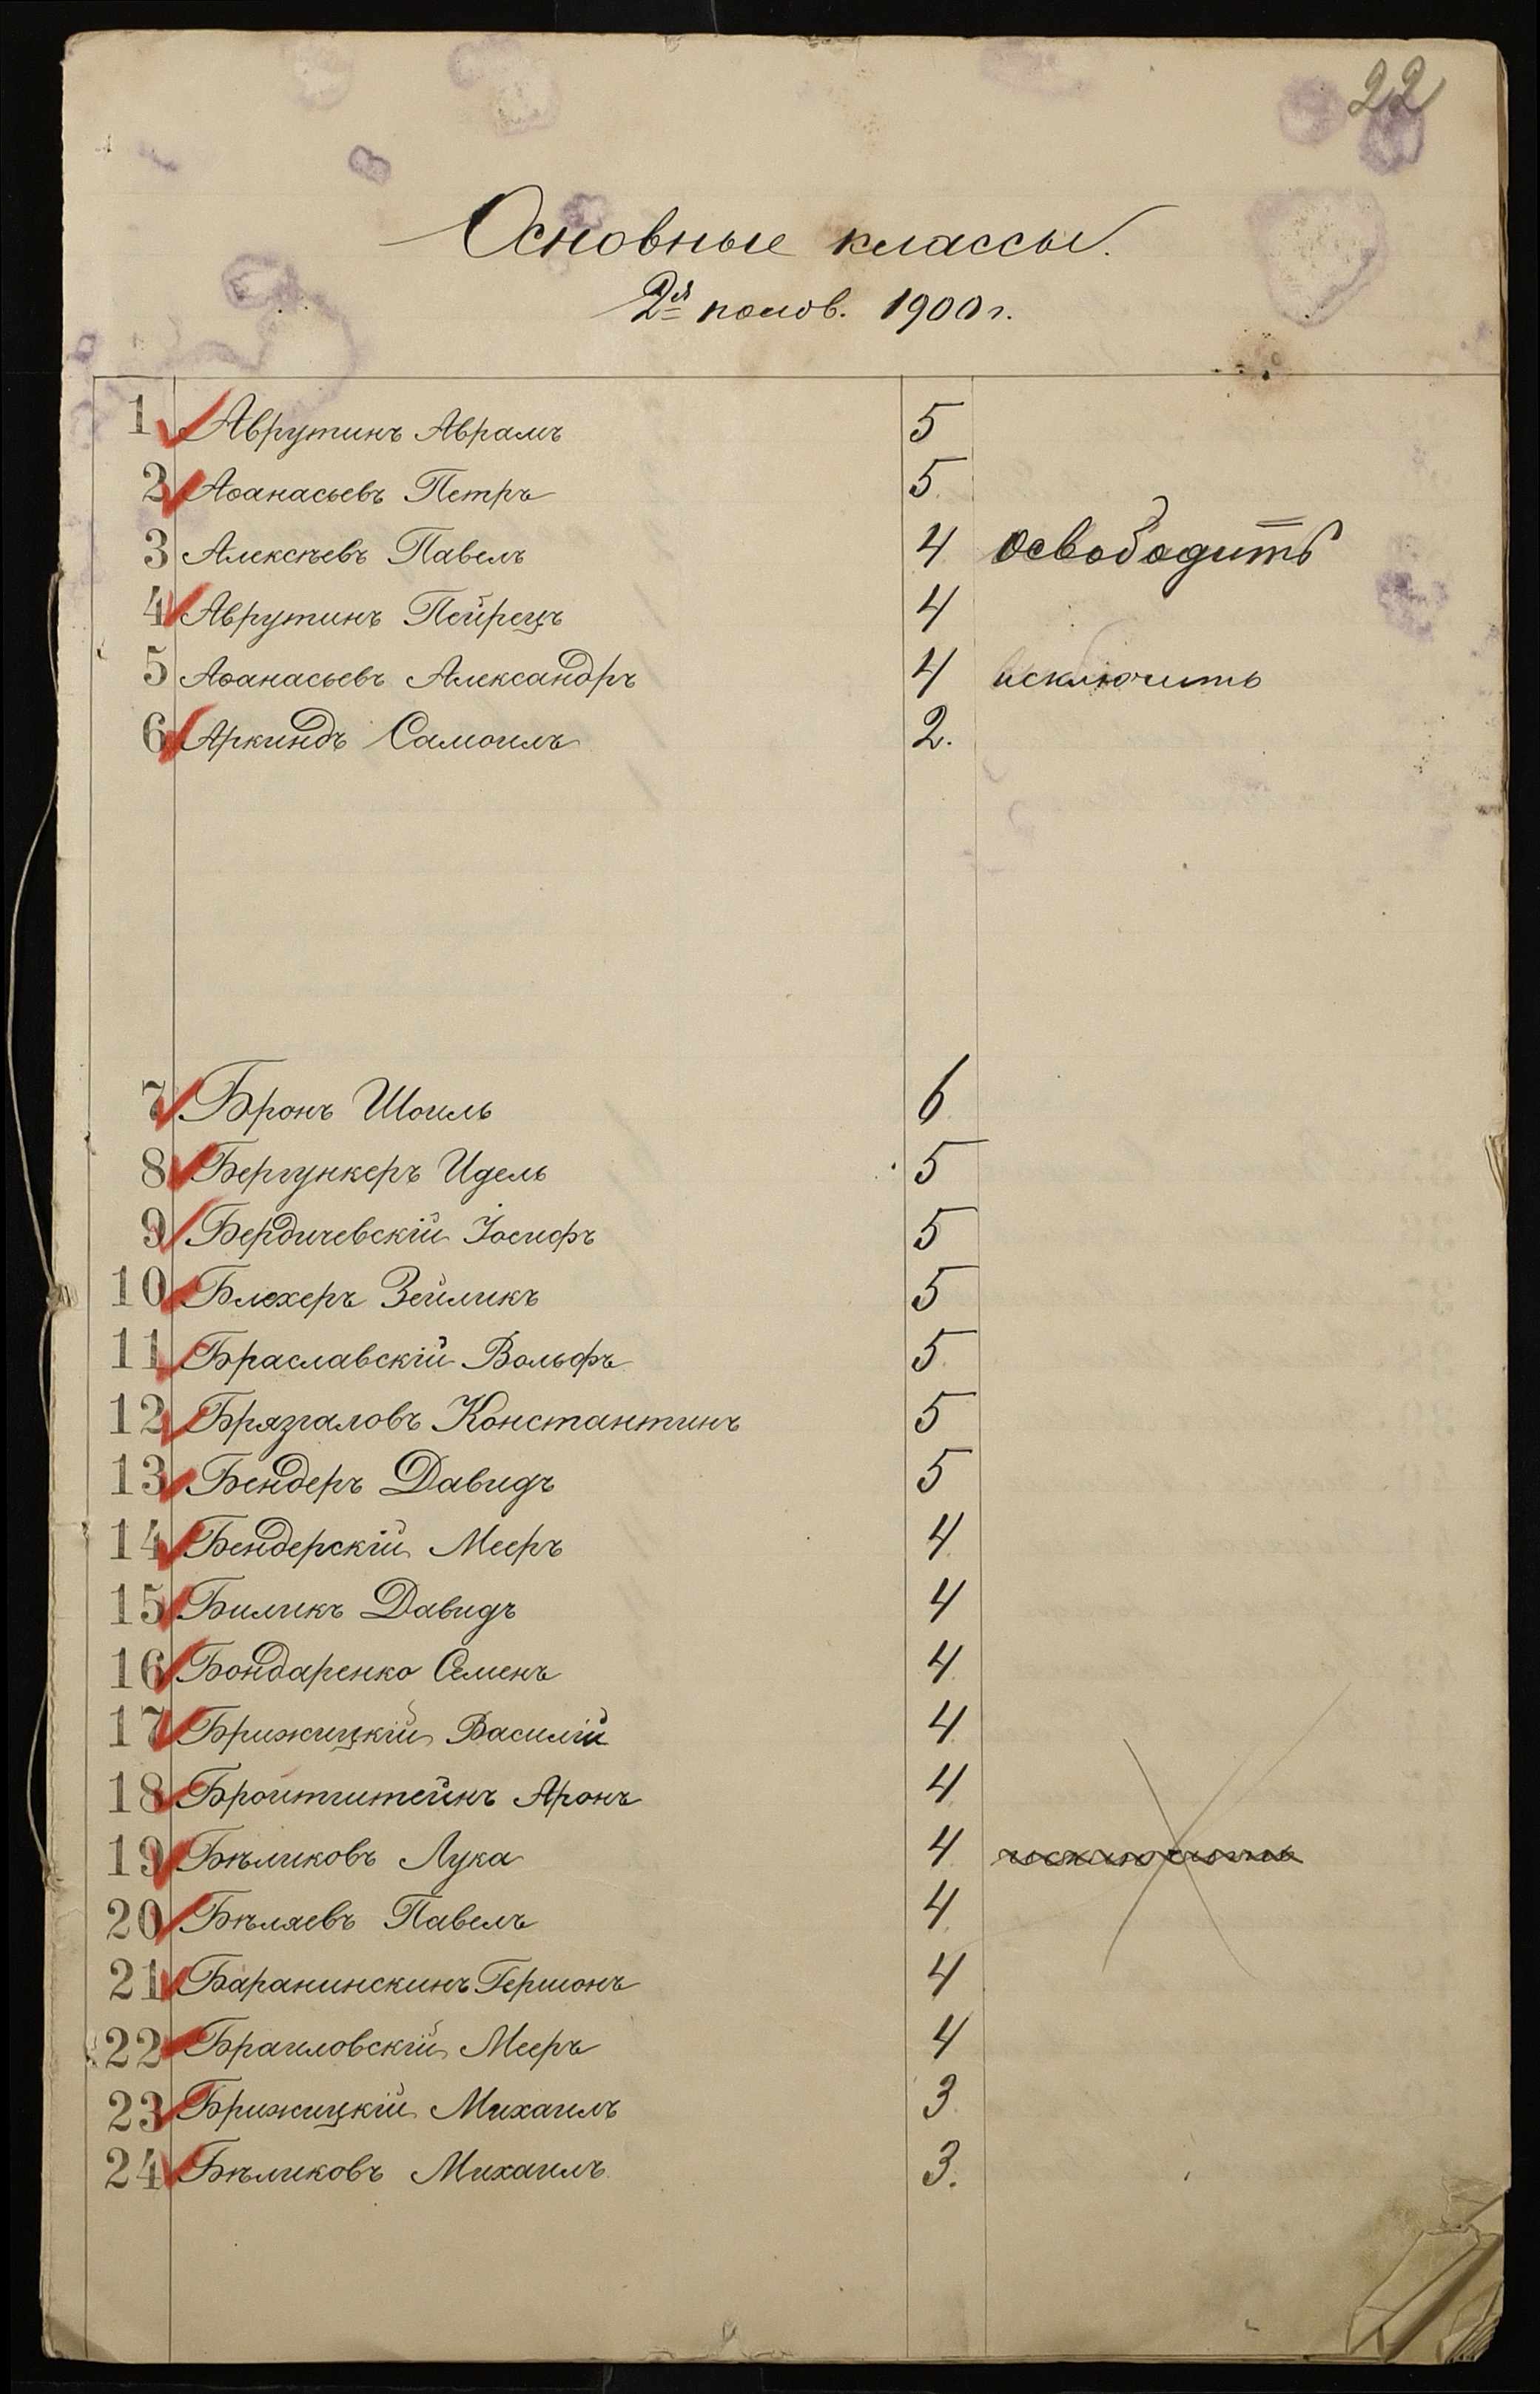 22
Основные классы.
2ая полов. 1900 г.
1 Аврутинъ Аврамъ 5
2 Аѳанасьевъ Петръ 5
3 Алексѣевъ Павелъ 4 освободить
4 Аврутинъ Пейрецъ 4
5 Аѳанасьевъ Александръ 4 исключить
6 Аркиндъ Самоилъ 2.
7 Бронъ Шоиль 6
8 Бергункеръ Идель 5
9 Бердичевскій Іосифъ 5
10 Блехеръ Зейликъ 5
11 Браславскій Вольфъ 5
12 Брязгаловъ Константинъ 5
13 Бендеръ Давидъ 5
14 Бендерскій Мееръ 4
15 Биликъ Давидъ 4
16 Бондаренко Семенъ 4
17 Брижицкій Василій 4
18 Бройтштейнъ Аронъ 4
19 Бѣликовъ Лука 4 исключить
20 Бѣляевъ Павелъ 4
21 Баранинскинъ Гершонъ 4
22 Браиловскій Мееръ 4
23 Брижицкій Михаилъ 3
24 Бѣликовъ Михаилъ 3.